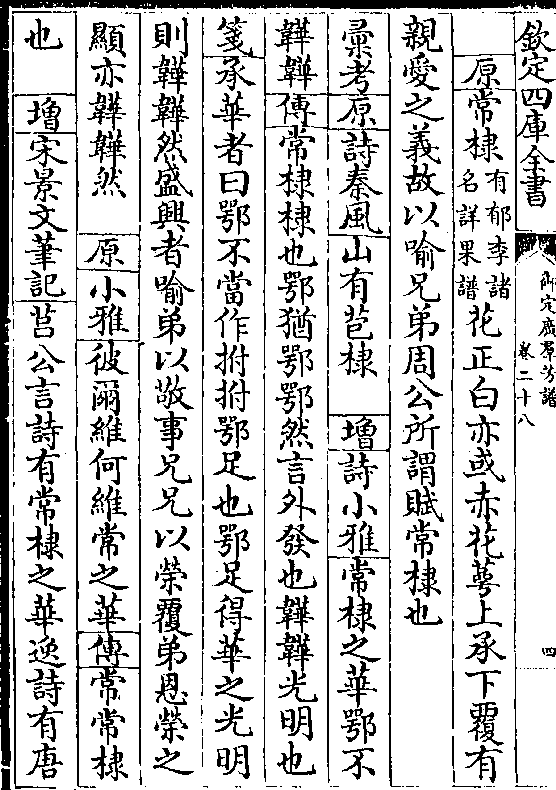 欽定四庫全書
御定廣羣芳譜
卷二十八
四
原常棣有郁李諸名詳果譜花正白亦或赤花萼上承下覆有
親愛之義故以喻兄弟周公所謂賦常棣也
彙考原詩秦風山有苞棣 增詩小雅常棣之華鄂不
韡韡傳常棣棣也鄂猶鄂鄂然言外發也韡韡光明也
箋承華者曰鄂不當作拊拊鄂足也鄂足得華之光明
則韡韡然盛興者喻弟以敬事兄兄以榮覆弟恩榮之
顯亦韡韡然 原小雅彼爾維何維常之華傳常常棣
也 增宋景文筆記莒公言詩有常棣之華逸詩有唐